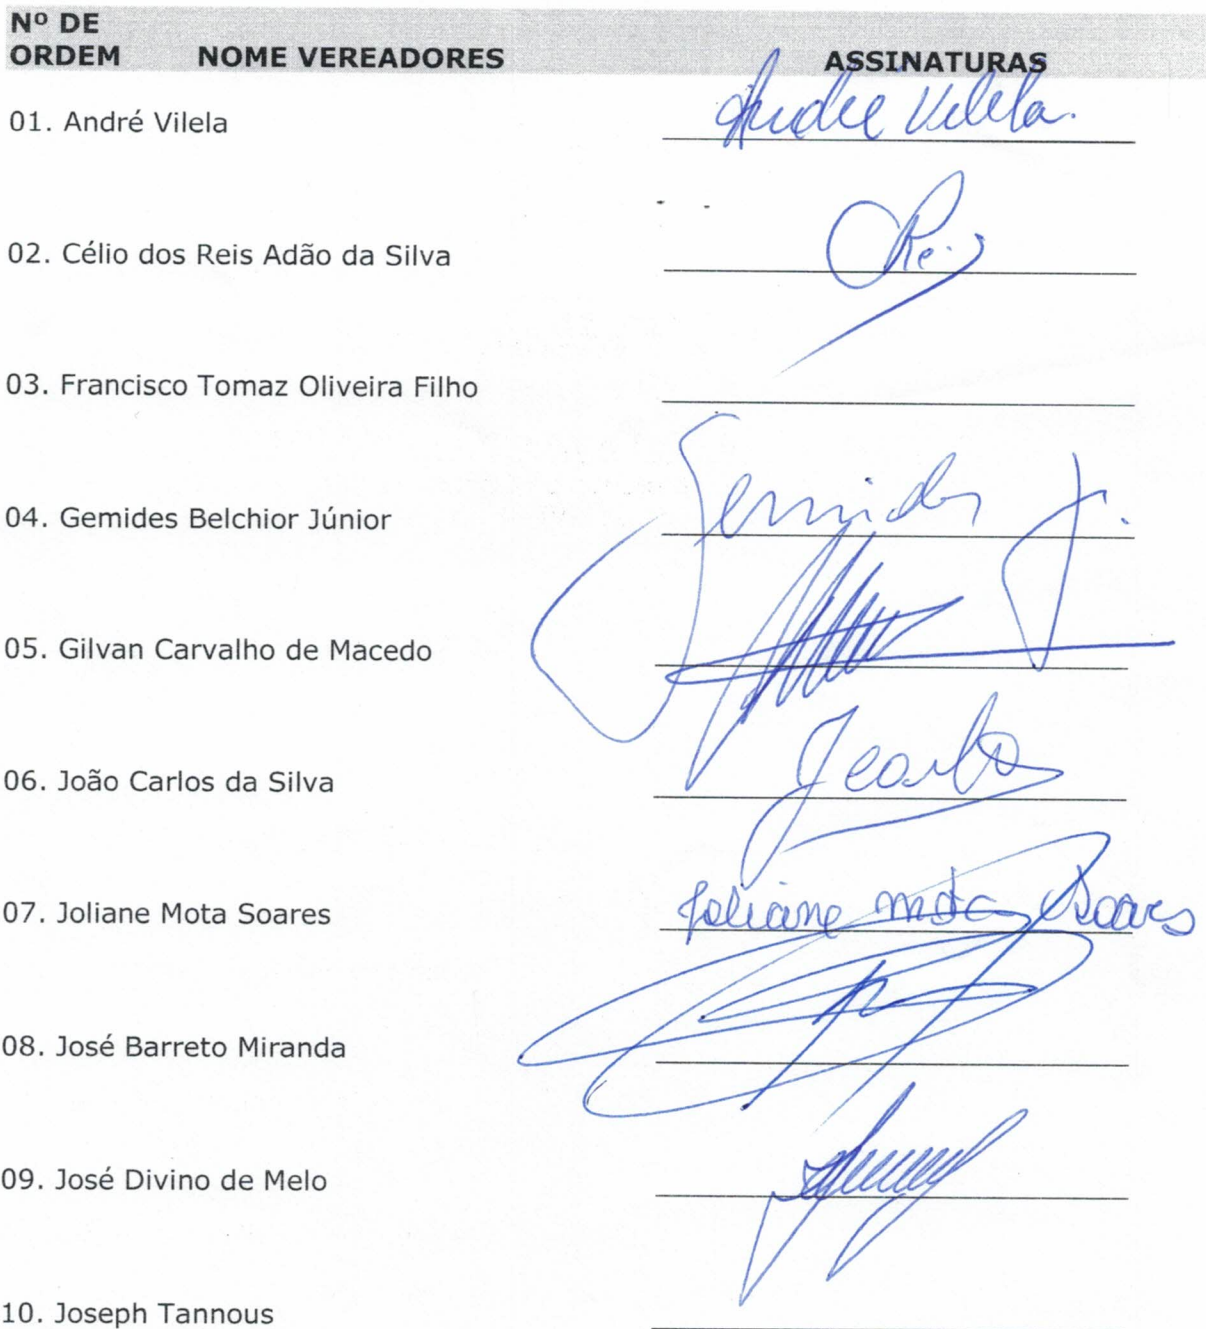 Nº DE
ORDEM NOME VEREADORES ASSINATURAS
01. André Vilela Andre Vilela.
02. Célio dos Reis Adão da Silva Reis
03. Francisco Tomaz Oliveira Filho
04. Gemides Belchior Júnior Gemides Jr.
05. Gilvan Carvalho de Macedo
06. João Carlos da Silva
07. Joliane Mota Soares Joliane Mota Soares
08. José Barreto Miranda
09. José Divino de Melo
10. Joseph Tannous